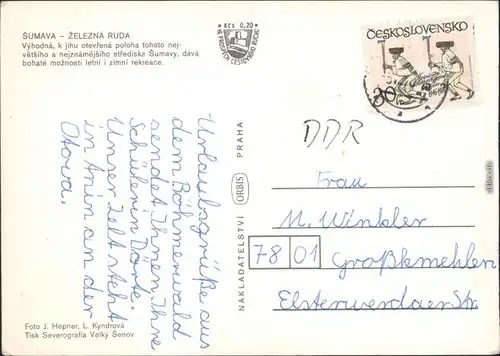 ŠUMAVA – ŽELEZNÁ RUDA
Výhodná, k jihu otevřená poloha tohoto nej-
většího a nejznámějšího střediska Šumavy, dává
bohaté možnosti letní i zimní rekreace.
Kčs 0,20
VE PROSPĚCH CESTOVNÍHO RUCHU
ČESKOSLOVENSKO
30
DDR
Urlaubsgrüße aus
dem Böhmerwald
sendet Ihnen Ihre
Schülerin Dörte.
Unser Zelt steht
in Anin an der
Otava.
NAKLADATELSTVÍ ORBIS PRAHA
Frau
M. Winkler
7801 Großkmehlen
Elsterwerdaer Str.
Foto J. Hepner, L. Kyndrová
Tisk Severografia Velký Šenov